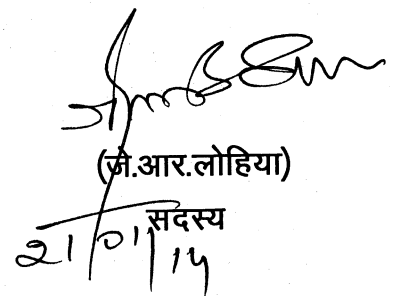 (जे.आर.लोहिया)
सदस्य
21/01/14